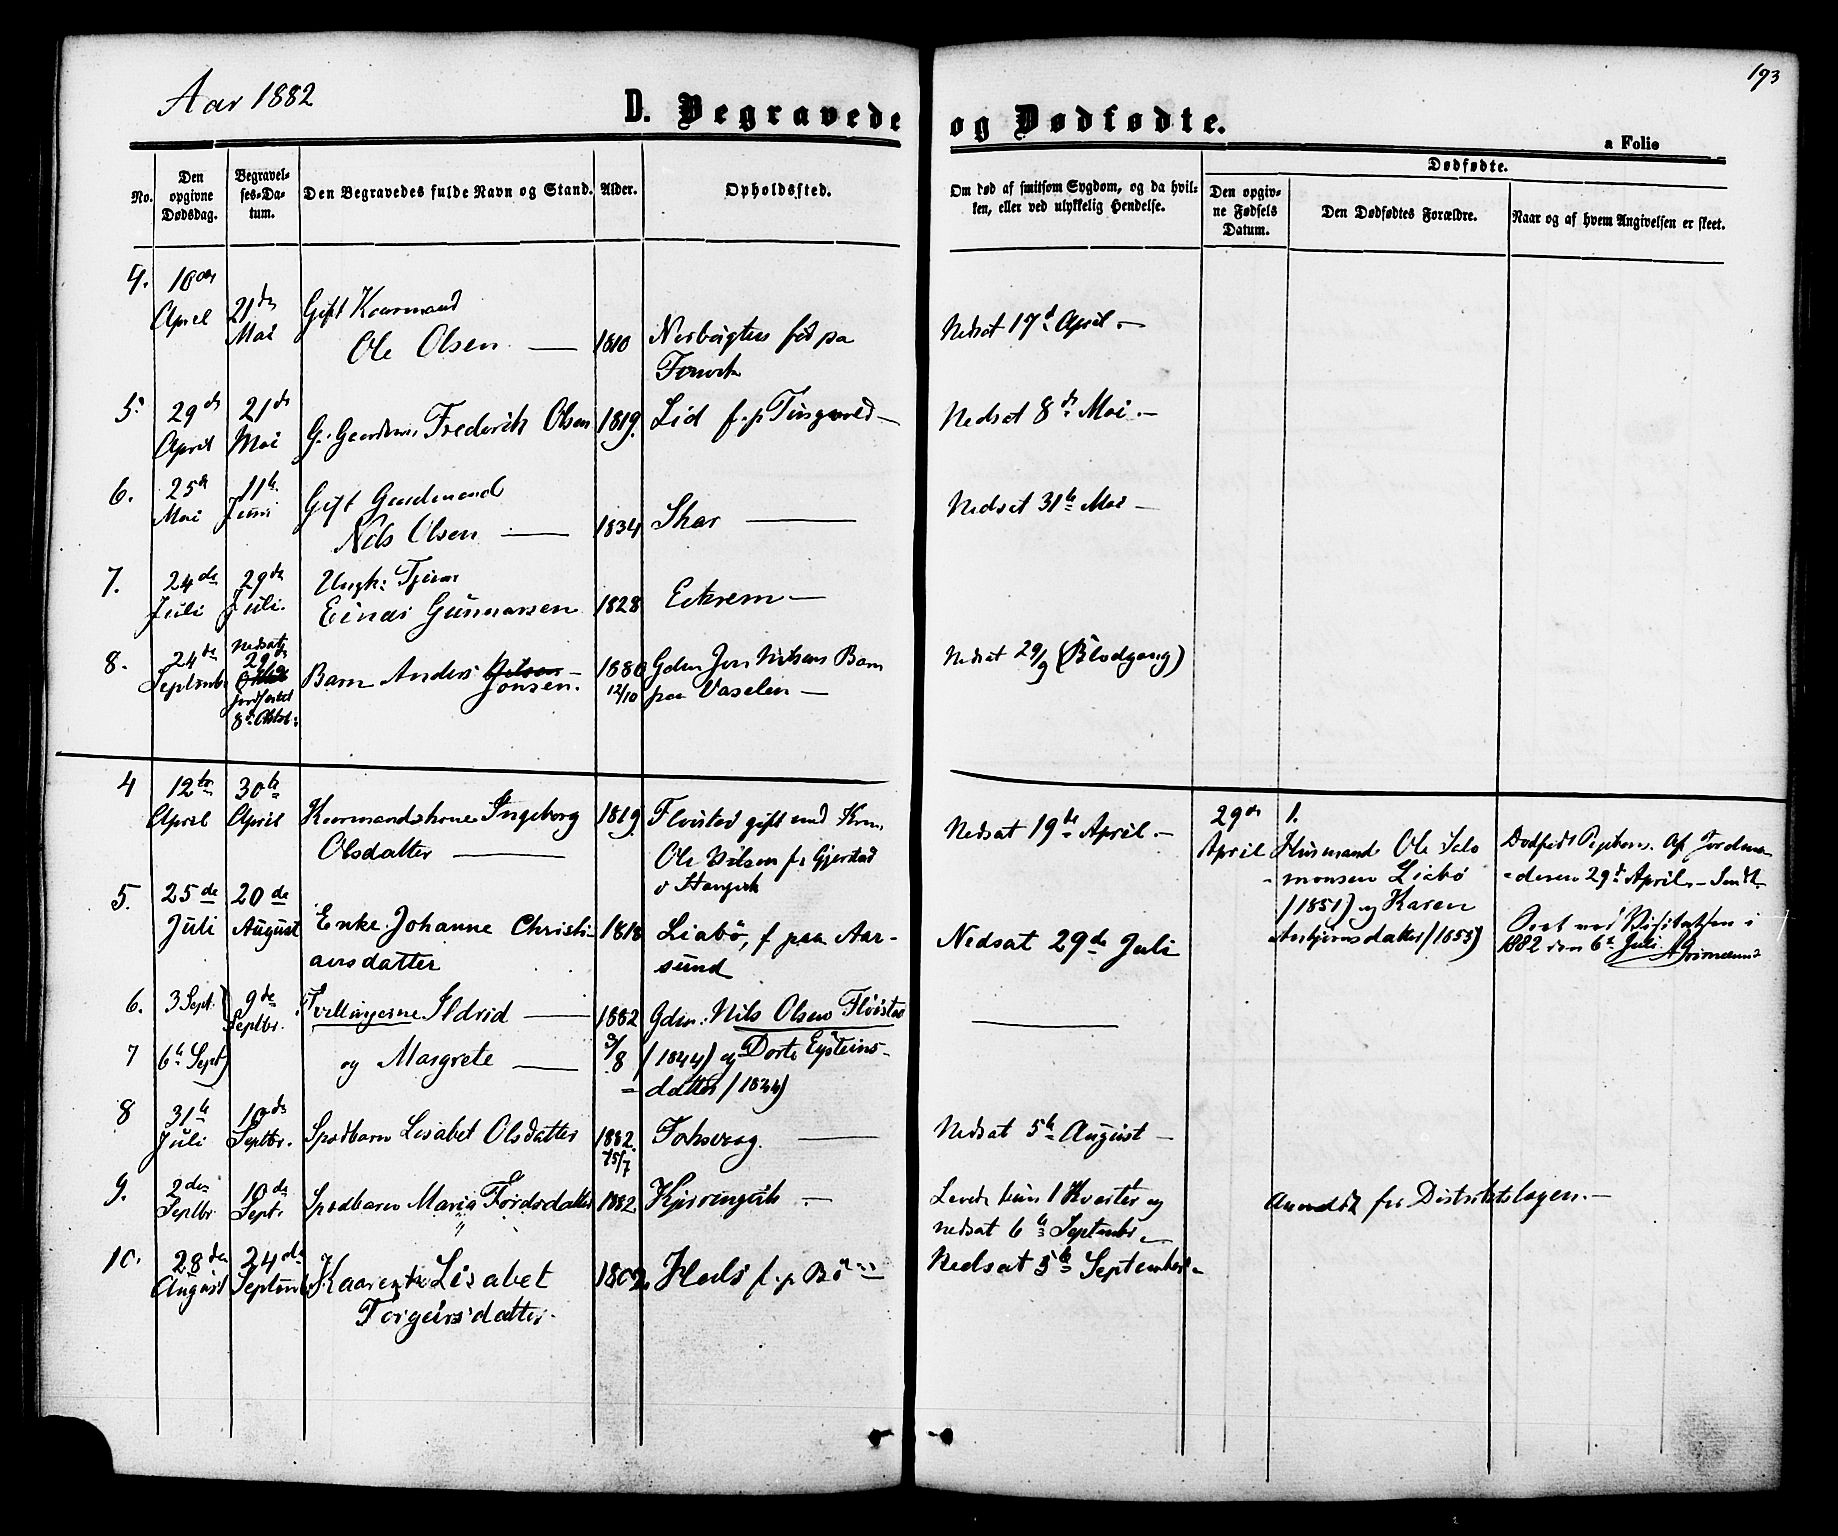 Aar 1882
193
D. Begravede og Dødfødte.
a Folio
No.
Den opgivne Dødsdag.
Begravelses-Datum.
Den Begravedes fulde Navn og Stand.
Alder.
Opholdssted.
Om død af smitsom Sygdom, og da hvilken, eller ved ulykkelig Hendelse.
Dødfødte.
Den opgivne Fødsels Datum.
Den Dødfødtes Forældre.
Naar og af hvem Angivelsen er skeet.
4. 10de April 21de Mai Gift Kaarmand
Ole Olsen — 1810 fød paa
Nedsat 17d April —
5. 29de April 21de Mai G. Frederik Olsen 1819 Lid f. p. Tingvold —
Nedsat 8de Mai. —
6. 25de Mai 11te Juni Gift Gaardmand
Nils Olsen — 1834 Skar —
Nedsat 31te Mai —
7. 24de Juli 29de Juli. Ungk: Tjener
Einar Gunnarsen 1828 Eikrem —
8. 24de Septembr Nedsat 29de jordfæstet 8de Oktbr: Barn Anders Nilsen Jonsen. 1880 12/10 Gdm Jon Nilsens Barn
paa Vaselen —
Nedsat 29/9 (Blodgang)
4 12te April 30te April Kaarmandskone Ingeborg
Olsdatter — 1819 Fløistad gift med Krm.
Ole Nilsen f. Gjerstad
Nedsat 19de April. —
29de April 1. Husmand Ole Salo
monsen Liabø
(1851) og Karen
datter (1853)
Dødfødt Pigebarn. Af Jordmo
deren 29d April. —
ved Visitatsen i
1882 den 6te Juli
5. 25de Juli 20de August Enke Johanne Christi-
ansdatter 1818 Liabø, f paa Aar-
sund
Nedsat 29de Juli
6. 3 Sept. 9de Septbr. Tvillingerne Ildrid — 1882 Gdm: Nils Olsen Fløistad
7 6te Sept og Margrete — 3/8 (1844) og Dorte Eysteins-
datter (1844)
8 31te Juli 10de Septbr. Spædbarn Lisabet Olsdatter 1882 15/7 Torhsvaag. —
Nedsat 5te August —
9. 2den Septbr 10de Sept. Spædbarn Maria Tordsdatter 1882 Kjørsvingvik —
Levede kun 1 Kvarter og
nedsat 6te Septembr. —
Anmeldt for Distriktslægen. —
10. 28de August 24de Septembr Lisabet
Torgeirsdatter. 1802 f. p. Bø
Nedsat 5te September. —